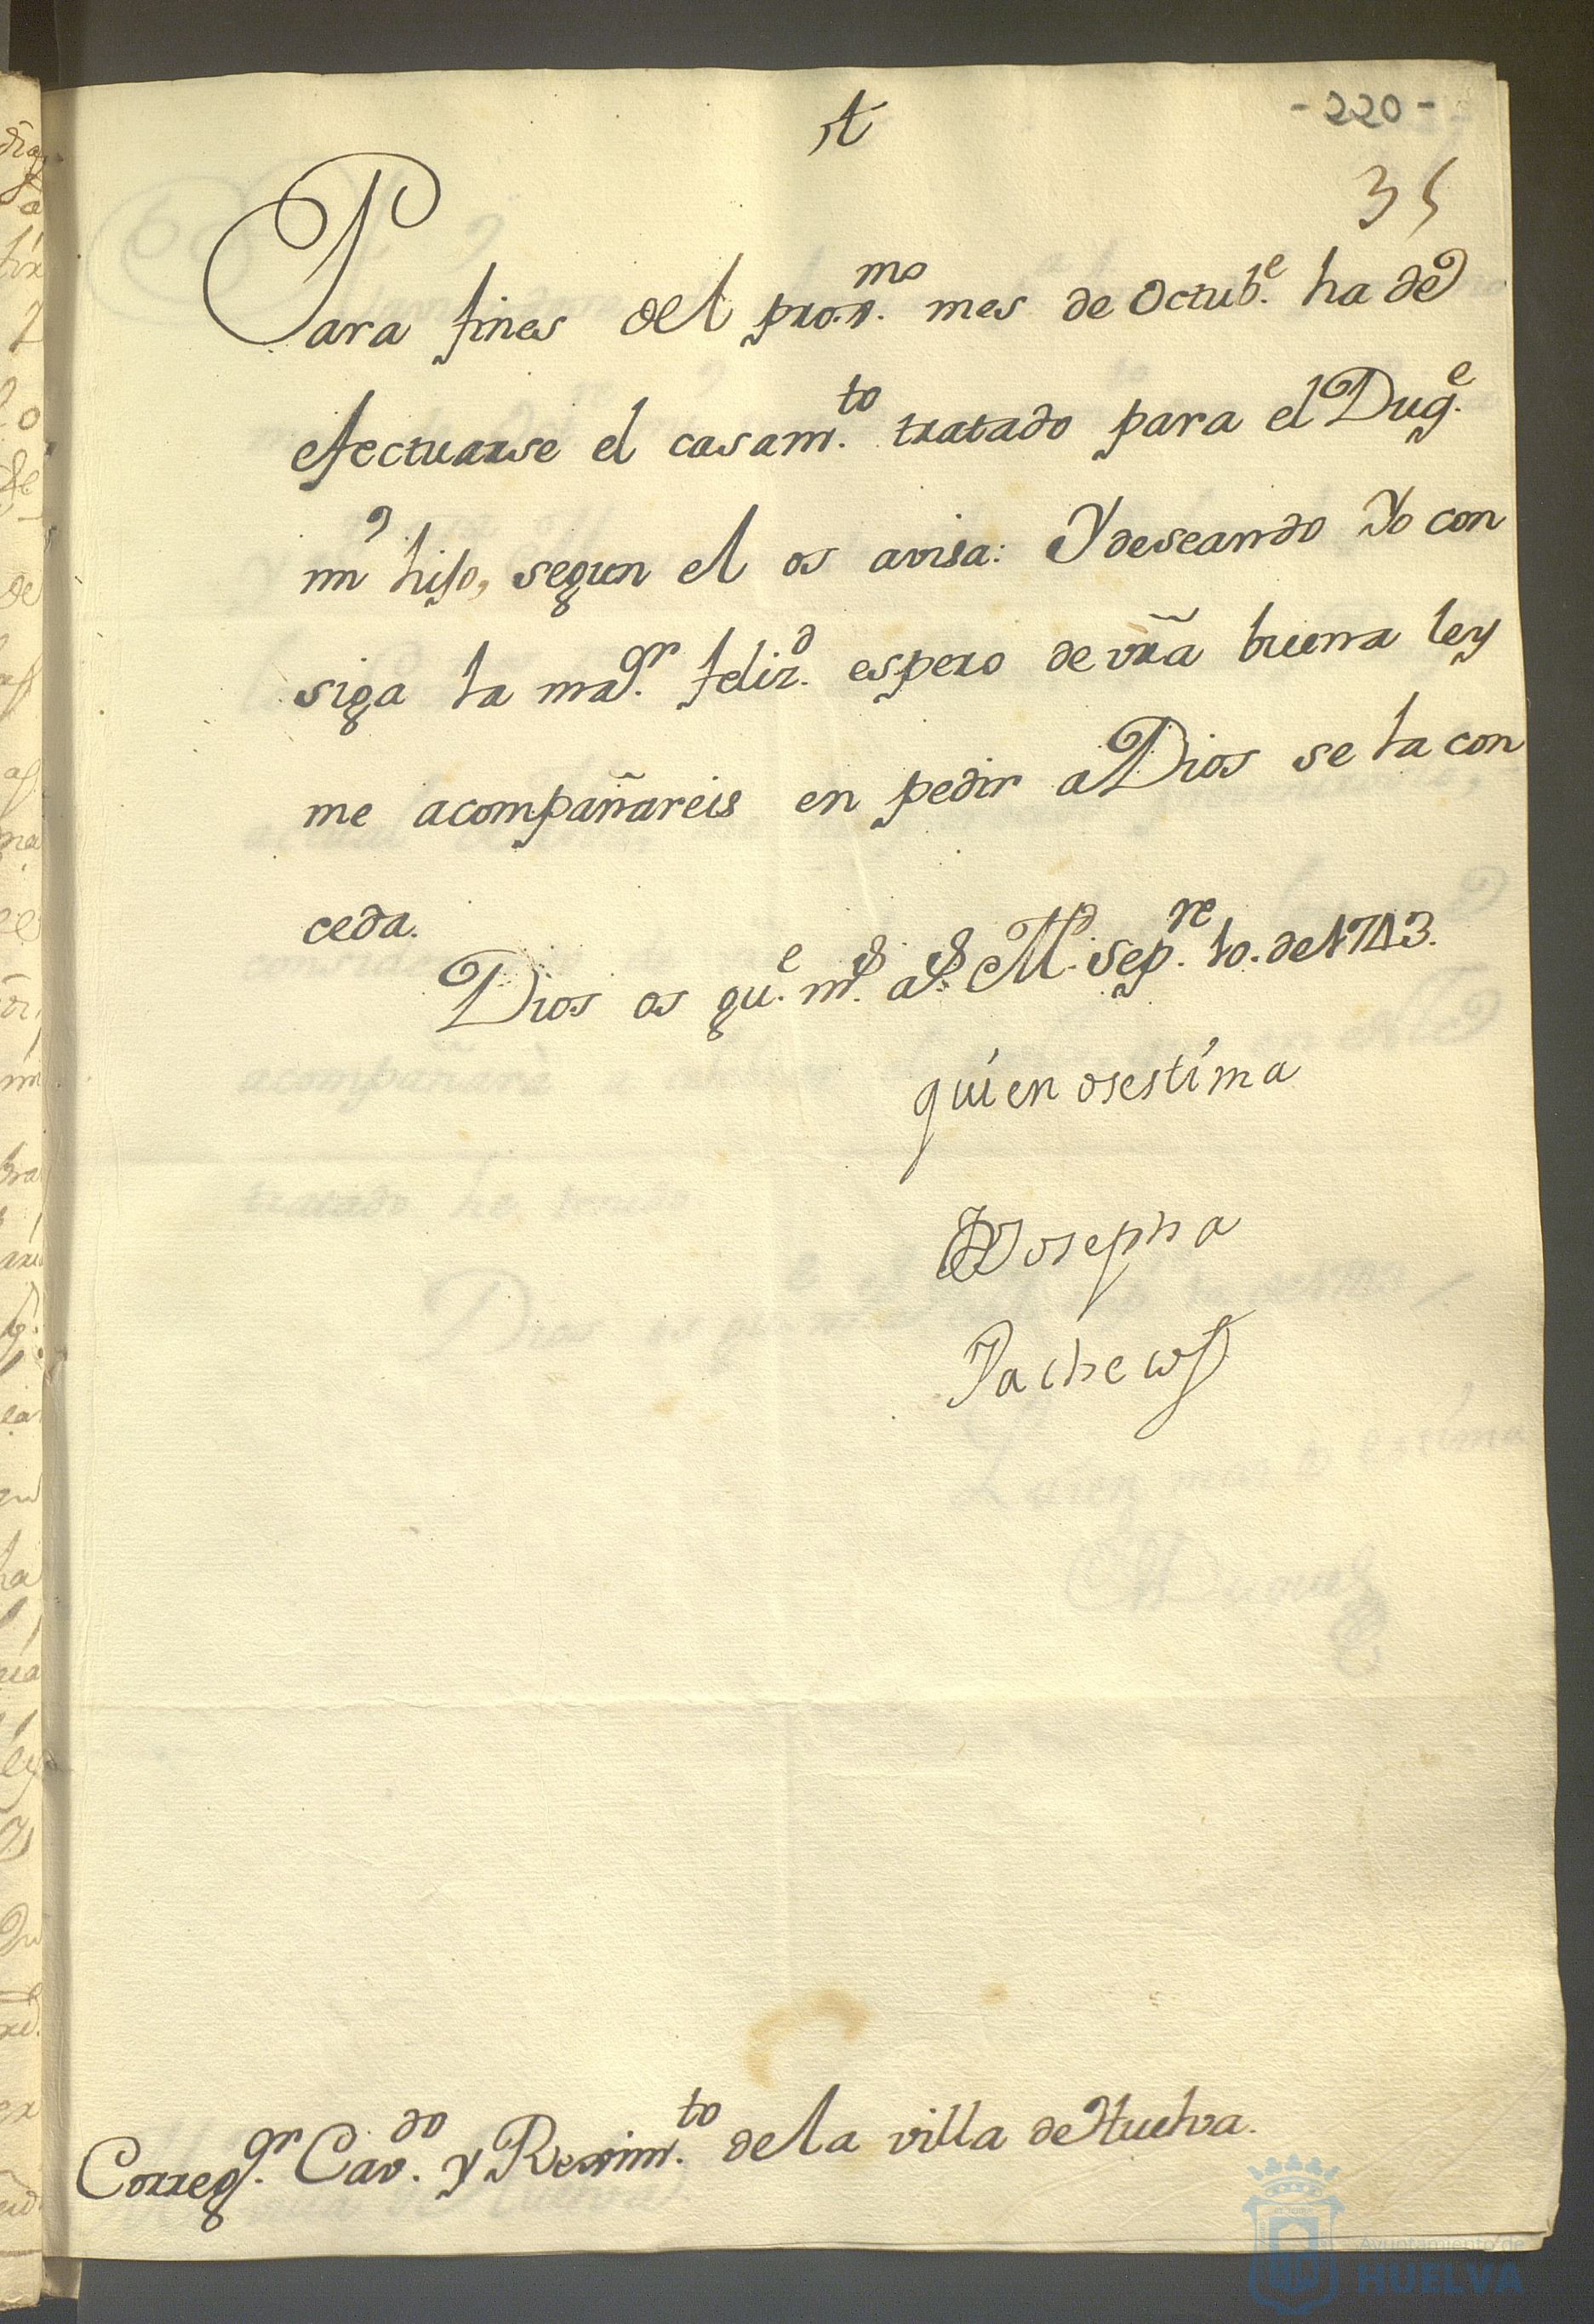 -220-
35
Para fines del pro.x.mo mes de Octub.e ha de
efectuarse el casam.to tratado para el Duq.e
mi hijo, segun el os avisa: Y deseando Yo con
siga la ma.or feliz.d espero de vrã buena ley
me acompañareis en pedir a Dios se la con
ceda.
Dios os gu.e m.s a.s M.d Sep.re 10. de 1743.
quien os estima
Josepha
Pacheco
Correg.or Cav.do y Rexim.to de la villa de Huelva.
Ayuntamiento de
HUELVA